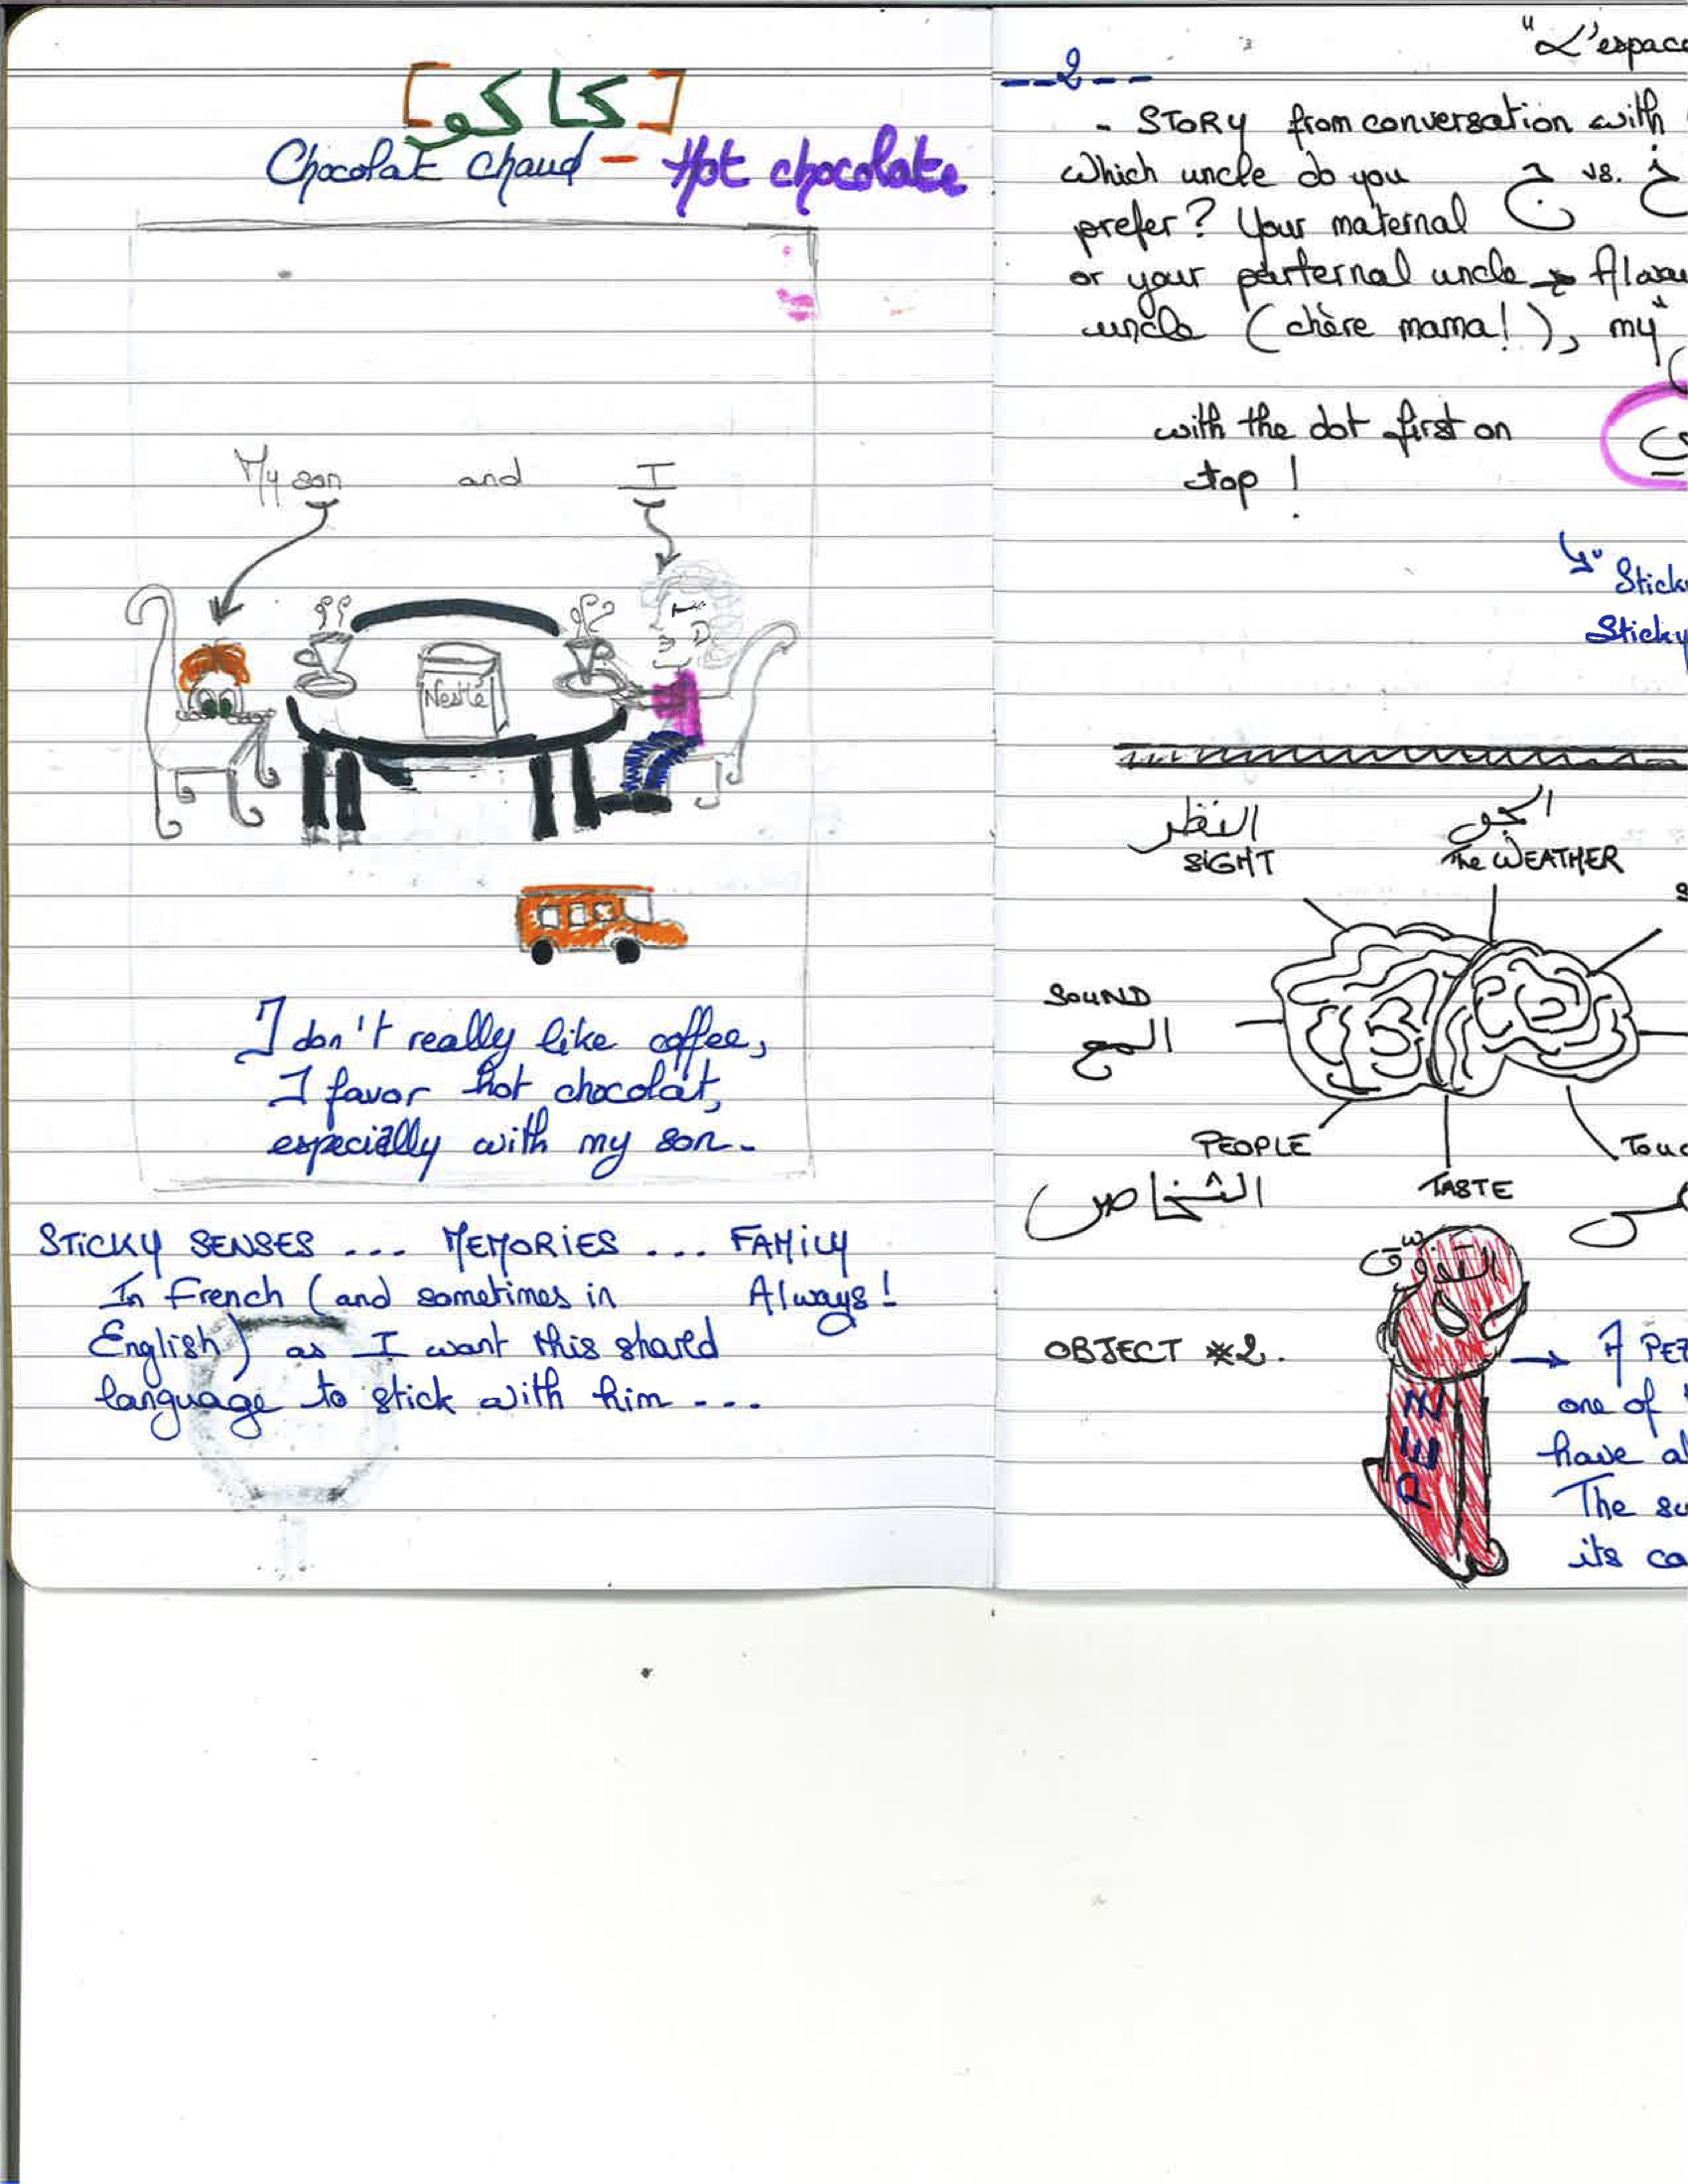 [كاكو]
Chocolat chaud - Hot chocolate
My son and I
Nestlé
I don't really like coffee,
I favor hot chocolat,
especially with my son.
STICKY SENSES ... MEMORIES ... FAMILY
In French (and sometimes in Always!
English) as I want this shared
language to stick with him ...
"L'espace
--2--
- STORY from conversation with
Which uncle do you ج vs. خ
prefer? Your maternal
or your parternal uncle →
uncle (chère mama!), my
with the dot first on
top!
Sticky
النظر الجو
SIGHT The WEATHER
SOUND
المع
PEOPLE
الشخاص
TASTE
التذوق
OBJECT #2. → A PEZ
PEZ
one of
have
The
its